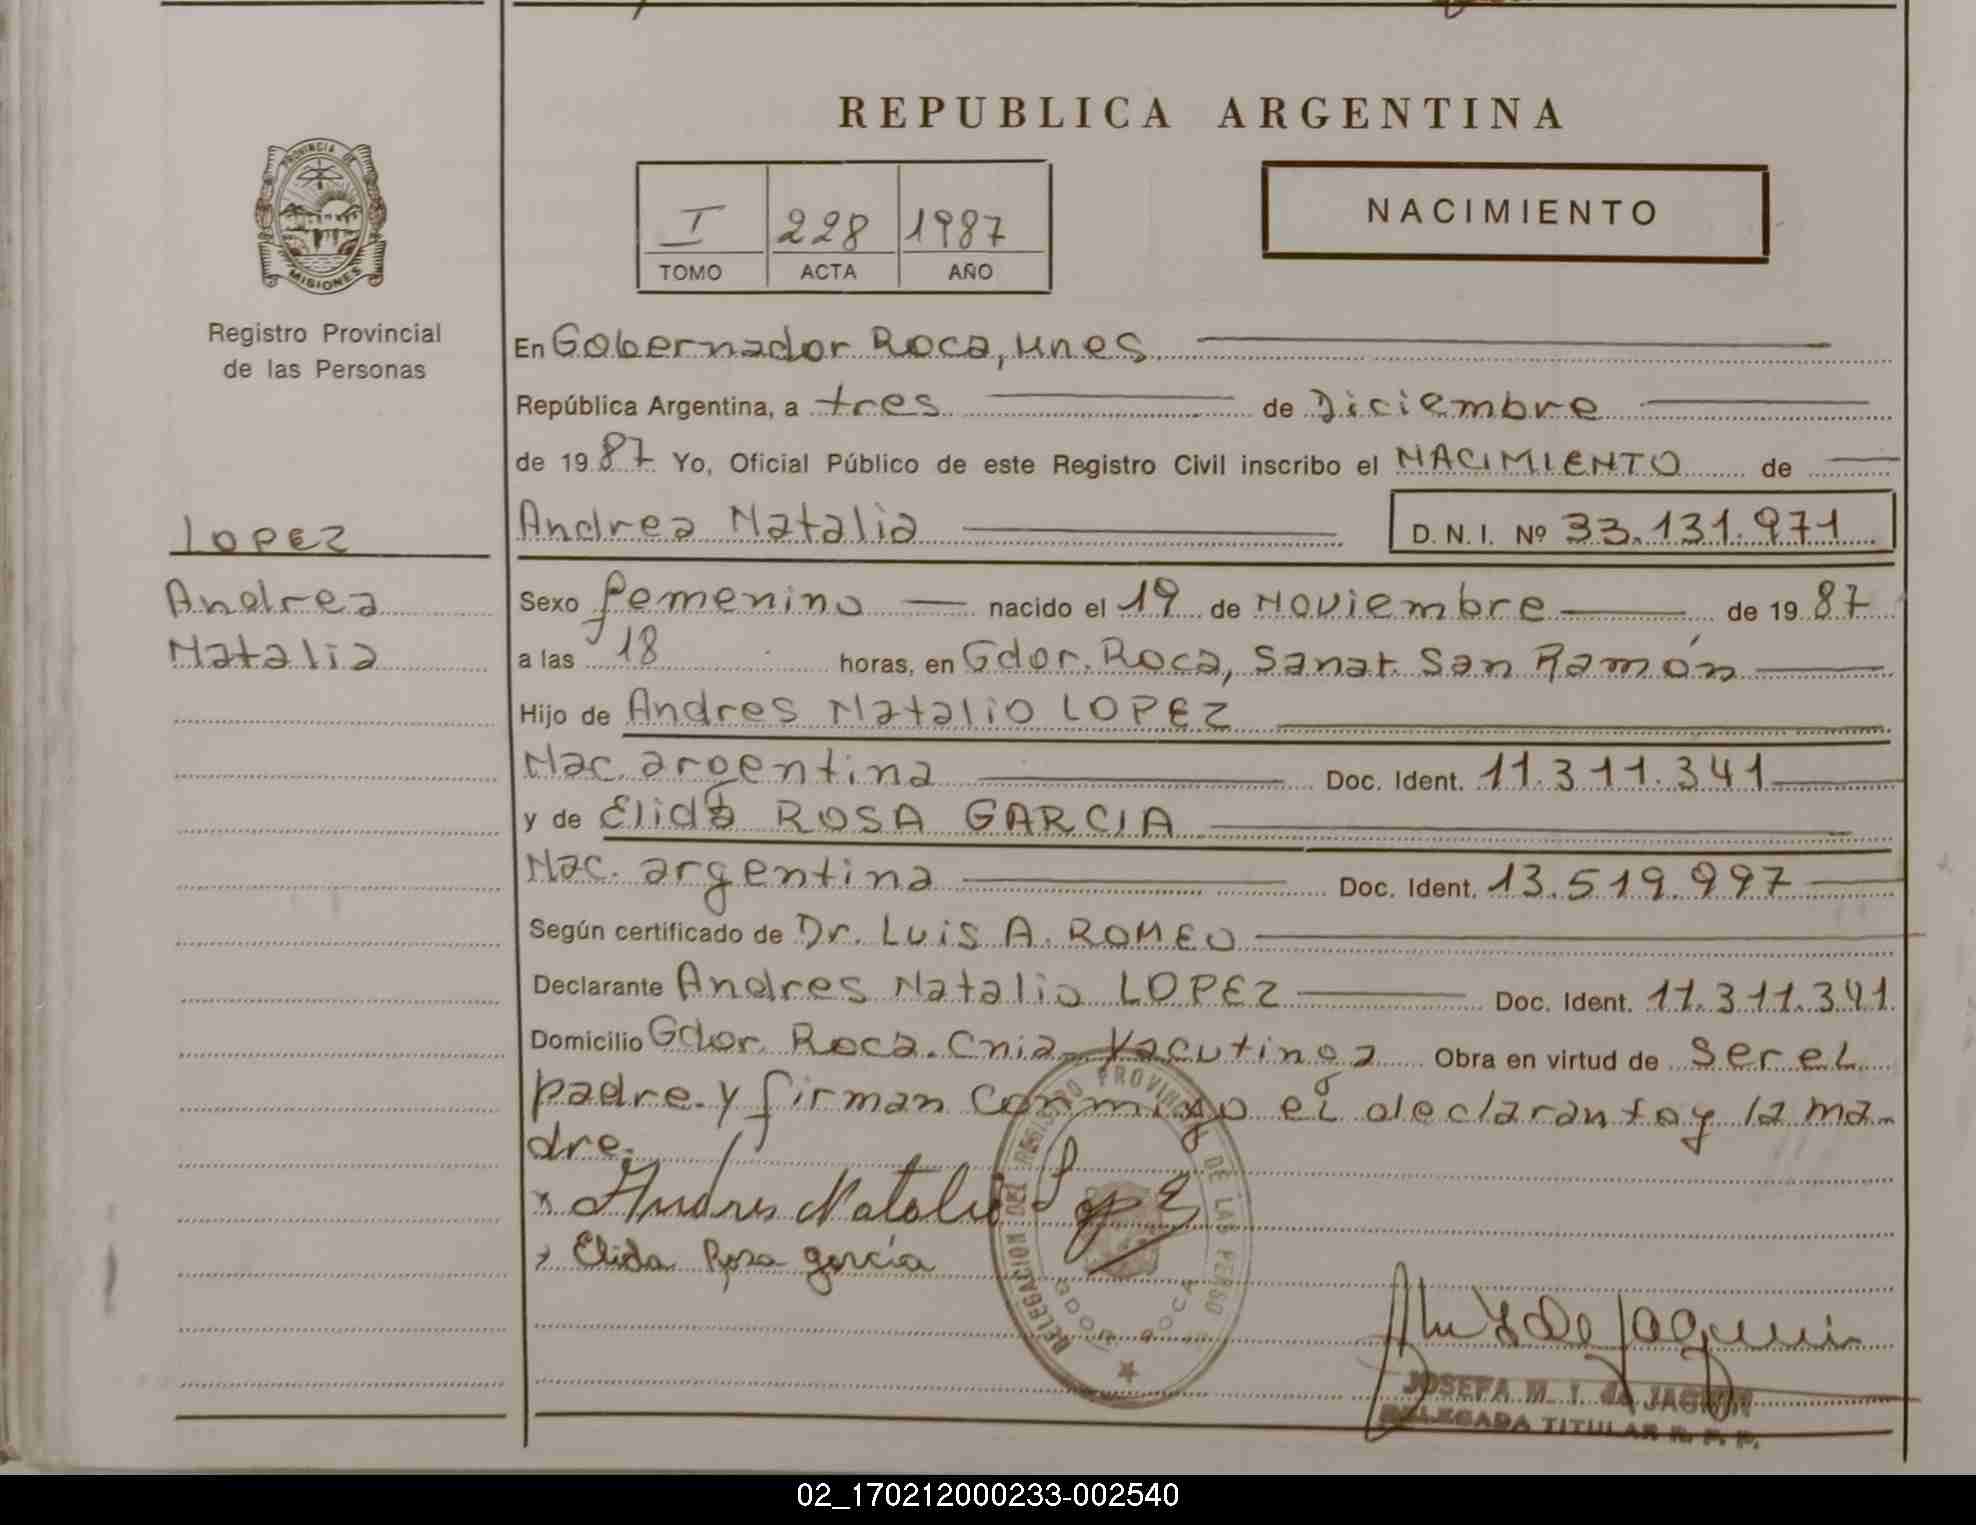 REPUBLICA ARGENTINA
PROVINCIA DE
MISIONES
Registro Provincial
de las Personas
I 228 1987
TOMO ACTA AÑO
NACIMIENTO
En Gobernador Roca, Mnes
República Argentina, a tres de Diciembre
de 1987 Yo, Oficial Público de este Registro Civil inscribo el NACIMIENTO de
LOPEZ
Andrea
Natalia
Andrea Natalia D. N. I. Nº 33.131.971
Sexo femenino nacido el 19 de Noviembre de 1987
a las 18 horas, en Gdor. Roca, Sanat. San Ramón
Hijo de Andres Natalio LOPEZ
Nac. argentina Doc. Ident. 11.311.341
y de Elida ROSA GARCIA
Nac. argentina Doc. Ident. 13.519.997
Según certificado de Dr. Luis A. ROMEO
Declarante Andres Natalio LOPEZ Doc. Ident. 11.311.341
Domicilio Gdor. Roca. Cnia. Yacutinga Obra en virtud de ser el
padre. y firman conmigo el declarante y la ma
dre.
x Andres Natalio Lopez
x Elida Rosa garcía
DELEGACION DEL REGISTRO PROVINCIAL DE LAS PERSO
GDOR. ROCA
JOSEFA M. I. de JAGUIN
DELEGADA TITULAR R. P. P.
02_170212000233-002540